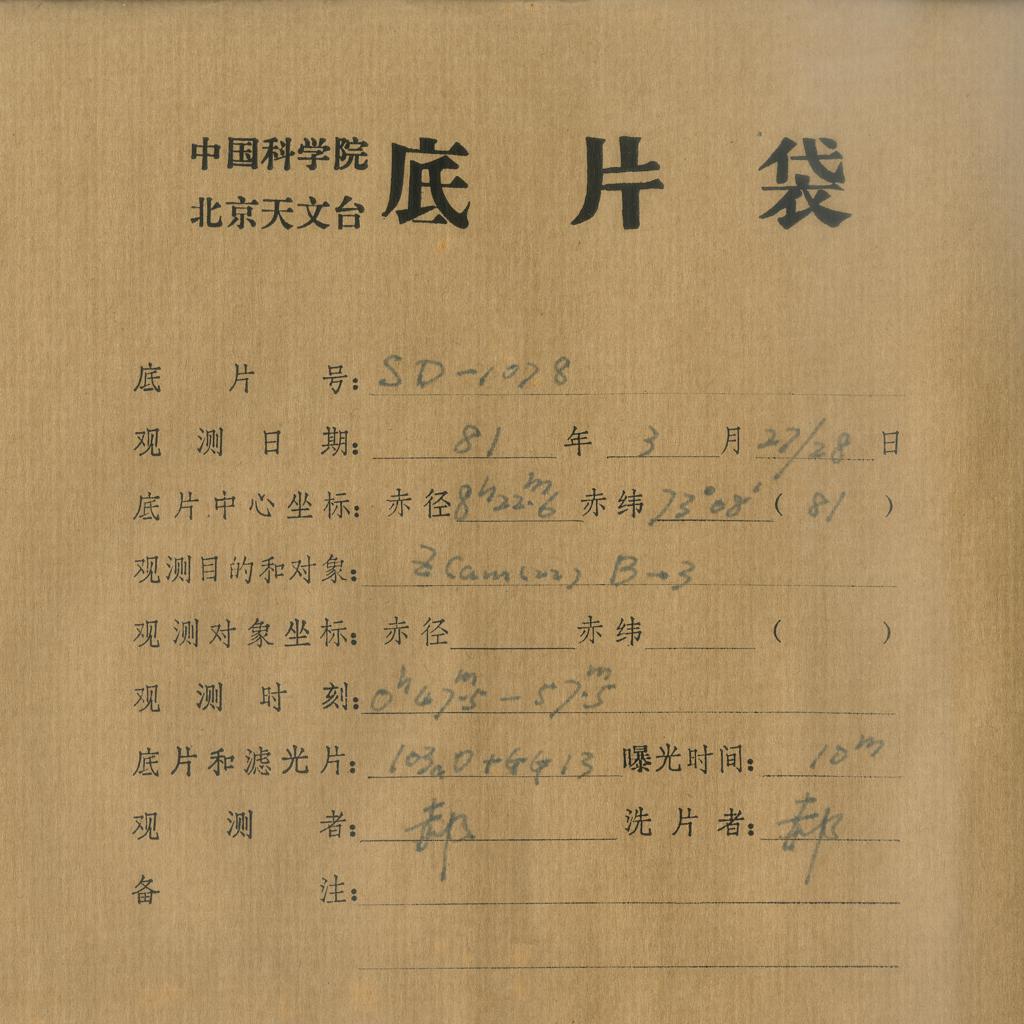 中国科学院
北京天文台
底片袋
底片号：SD-1078
观测日期：81年3月27/28日
底片中心坐标：赤径8h22m.6赤纬73°08′(81)
观测目的和对象：Z Cam(22) B→3
观测对象坐标：赤径 赤纬 ( )
观测时刻：0h47m.5-57m.5
底片和滤光片：103aO+GG13 曝光时间：10m
观测者：郝 洗片者：郝
备注：